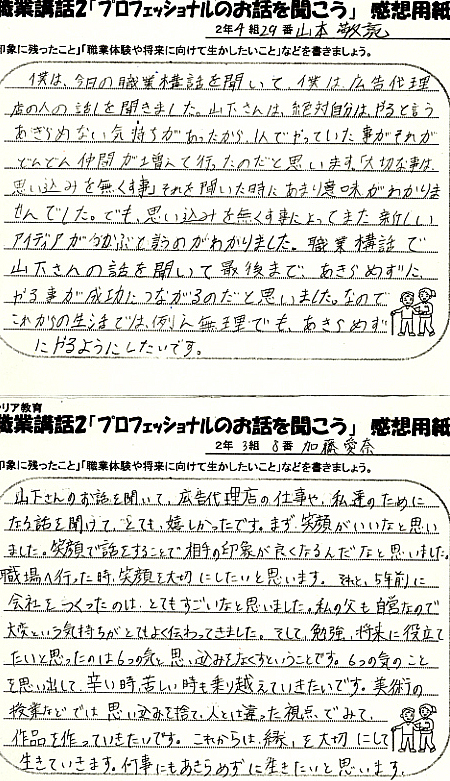 職業講話2「プロフェッショナルのお話を聞こう」 感想用紙
2年4組29番 山本
印象に残ったこと」「職業体験や将来に向けて生かしたいこと」などを書きましょう。
僕は、今日の職業構話を聞いて、僕は広告代理
店の人の話しを聞きました。山下さんは、絶対自分は、やると言う
あきらめない気持ちがあったから、1人でやっていた事がそれが
どんどん仲間が増えて行ったのだと思います。「大切な事は、
思い込みを無くす事」それを聞いた時にあまり意味がわかりま
せんでした。でも、思い込みを無くす事によってまた新しい
アイディアが浮かぶと言うのがわかりました。職業構話で
山下さんの話を聞いて最後まで、あきらめずに、
やる事が成功につながるのだと思いました。なので
これからの生活では、例え無理でも、あきらめず
にやるようにしたいです。
リア教育
職業講話2「プロフェッショナルのお話を聞こう」 感想用紙
2年 3組 8番 加藤愛奈
印象に残ったこと」「職業体験や将来に向けて生かしたいこと」などを書きましょう。
山下さんのお話を聞いて、広告代理店の仕事や、私達のために
なる話を聞けて、とても嬉しかったです。まず、笑顔がいいなと思い
ました。笑顔で話をすることで相手の印象が良くなるんだなと思いました。
職場へ行った時、笑顔を大切にしたいと思います。それと、5年前に
会社をつくったのは、とてもすごいなと思いました。私の父も自営なので
大変という気持ちがとてもよく伝わってきました。そして、勉強、将来に役立て
たいと思ったのは6つの気と思い込みをなくすということです。6つの気のこと
を思い出して、辛い時、苦しい時も乗り越えていきたいです。美術の
授業などでは思い込みを捨て、人とは違った視点でみて、
作品を作っていきたいです。これからは「縁」を大切にして
生きていきます。何事にもあきらめずに生きたいと思います。